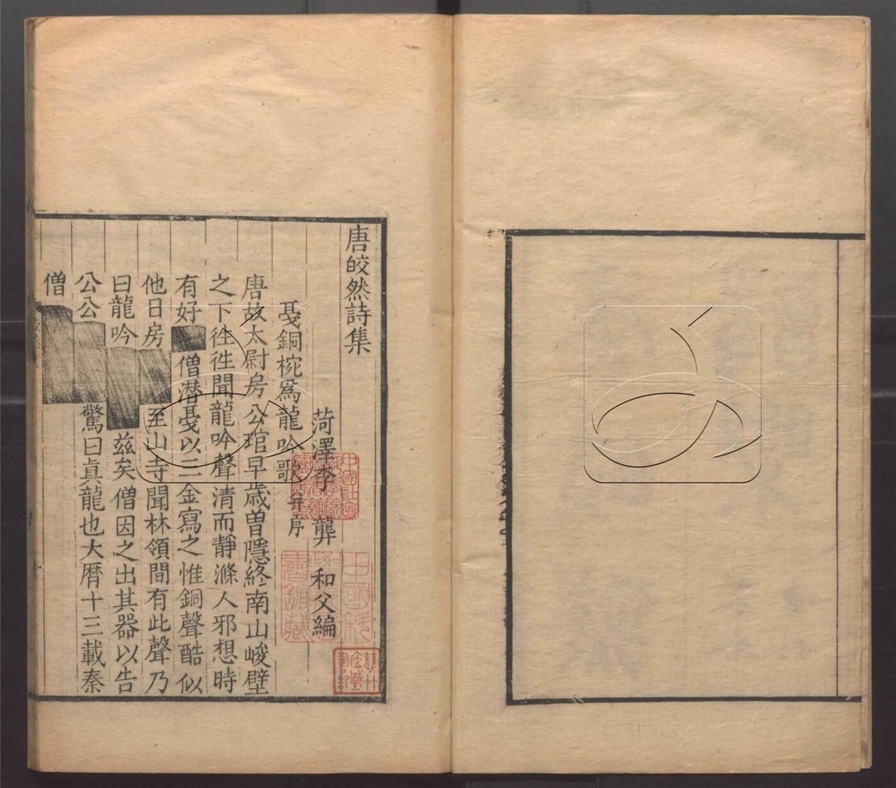 唐皎然詩集
菏澤李龏和父編
戞銅椀爲龍吟歌并序
唐故太尉房公琯早歲曽隱終南山峻壁
之下徃徃聞龍吟聲清而靜滌人邪想時
有好僧潜戞以三金寫之惟銅聲酷似
他日房至山寺聞林領間有此聲乃
曰龍吟兹矣僧因之出其器以告
公公驚曰真龍也大曆十三載秦
僧